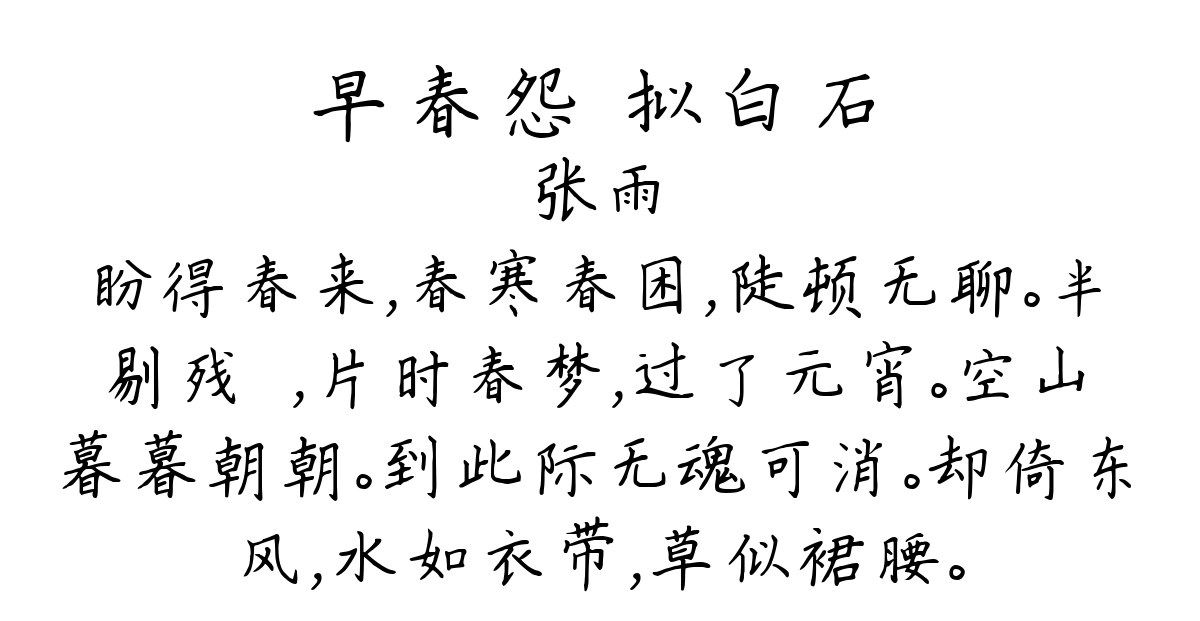 早春怨 拟白石
张雨
盼得春来,春寒春困,陡顿无聊。半
剔残 ,片时春梦,过了元宵。空山
暮暮朝朝。到此际无魂可消。却倚东
风,水如衣带,草似裙腰。